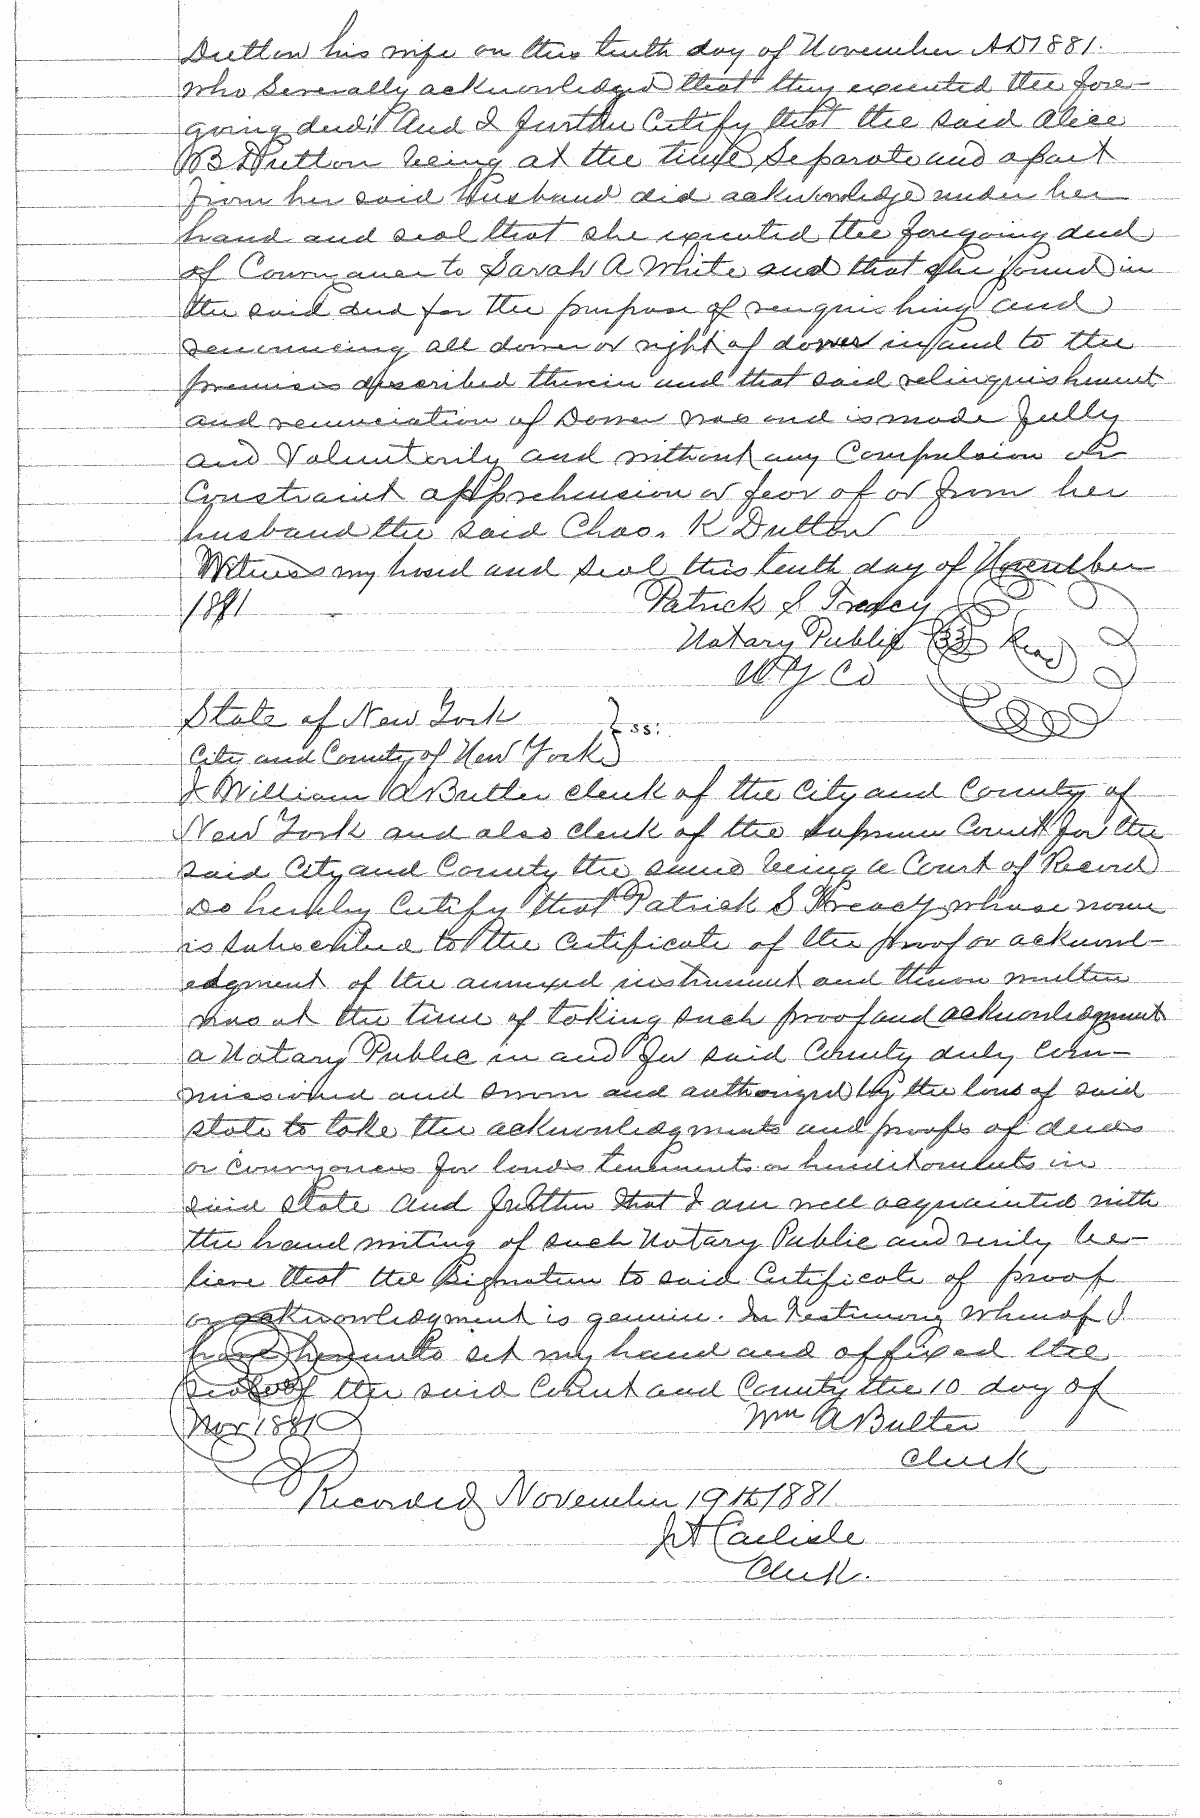 Dutton his wife on this tenth day of November AD 1881.
who Severally acknowledged that they executed the fore-
going deed. And I further Certify that the said Alice
B Dutton being at the time Separate and apart
from her said Husband did acknowledge under her
hand and seal that she executed the foregoing deed
of Conveyance to Sarah A White and that she joined in
the said deed for the purpose of renquishing and
renouncing all dower or right of dower in and to the
premises described therein and that said relinquishment
and renunciation of Dower was and is made fully
and Voluntarily and without any Compulsion or
Constraint apprehension or fear of or from her
husband the said Chas. K Dutton
Witness my hand and seal this tenth day of November
1881 Patrick S Treacy
Notary Public (33) Read
N Y Co
State of New York } ss:
City and County of New York
I William A Butler clerk of the City and County of
New York and also clerk of the Supreme Court for the
said City and County the same being a Court of Record
Do hereby Certify that Patrick S Treacy whose name
is subscribed to the Certificate of the proof or acknowl-
edgment of the annexed instrument and thereon written
was at the time of taking such proof and acknowledgment
a Notary Public in and for said County duly Com-
missioned and sworn and authorized by the laws of said
state to take the acknowledgments and proofs of deeds
or Conveyances for lands tenements or hereditaments in
said State And further that I am well acquainted with
the hand writing of such Notary Public and verily be-
lieve that the Signature to said Certificate of proof
or acknowledgment is genuine. In Testimony Whereof I
have hereunto set my hand and affixed the
seal of the said Court and County the 10 day of
Nov 1881 Wm A Butler
Clerk
Recorded November 19th 1881
Carlisle
Clerk.